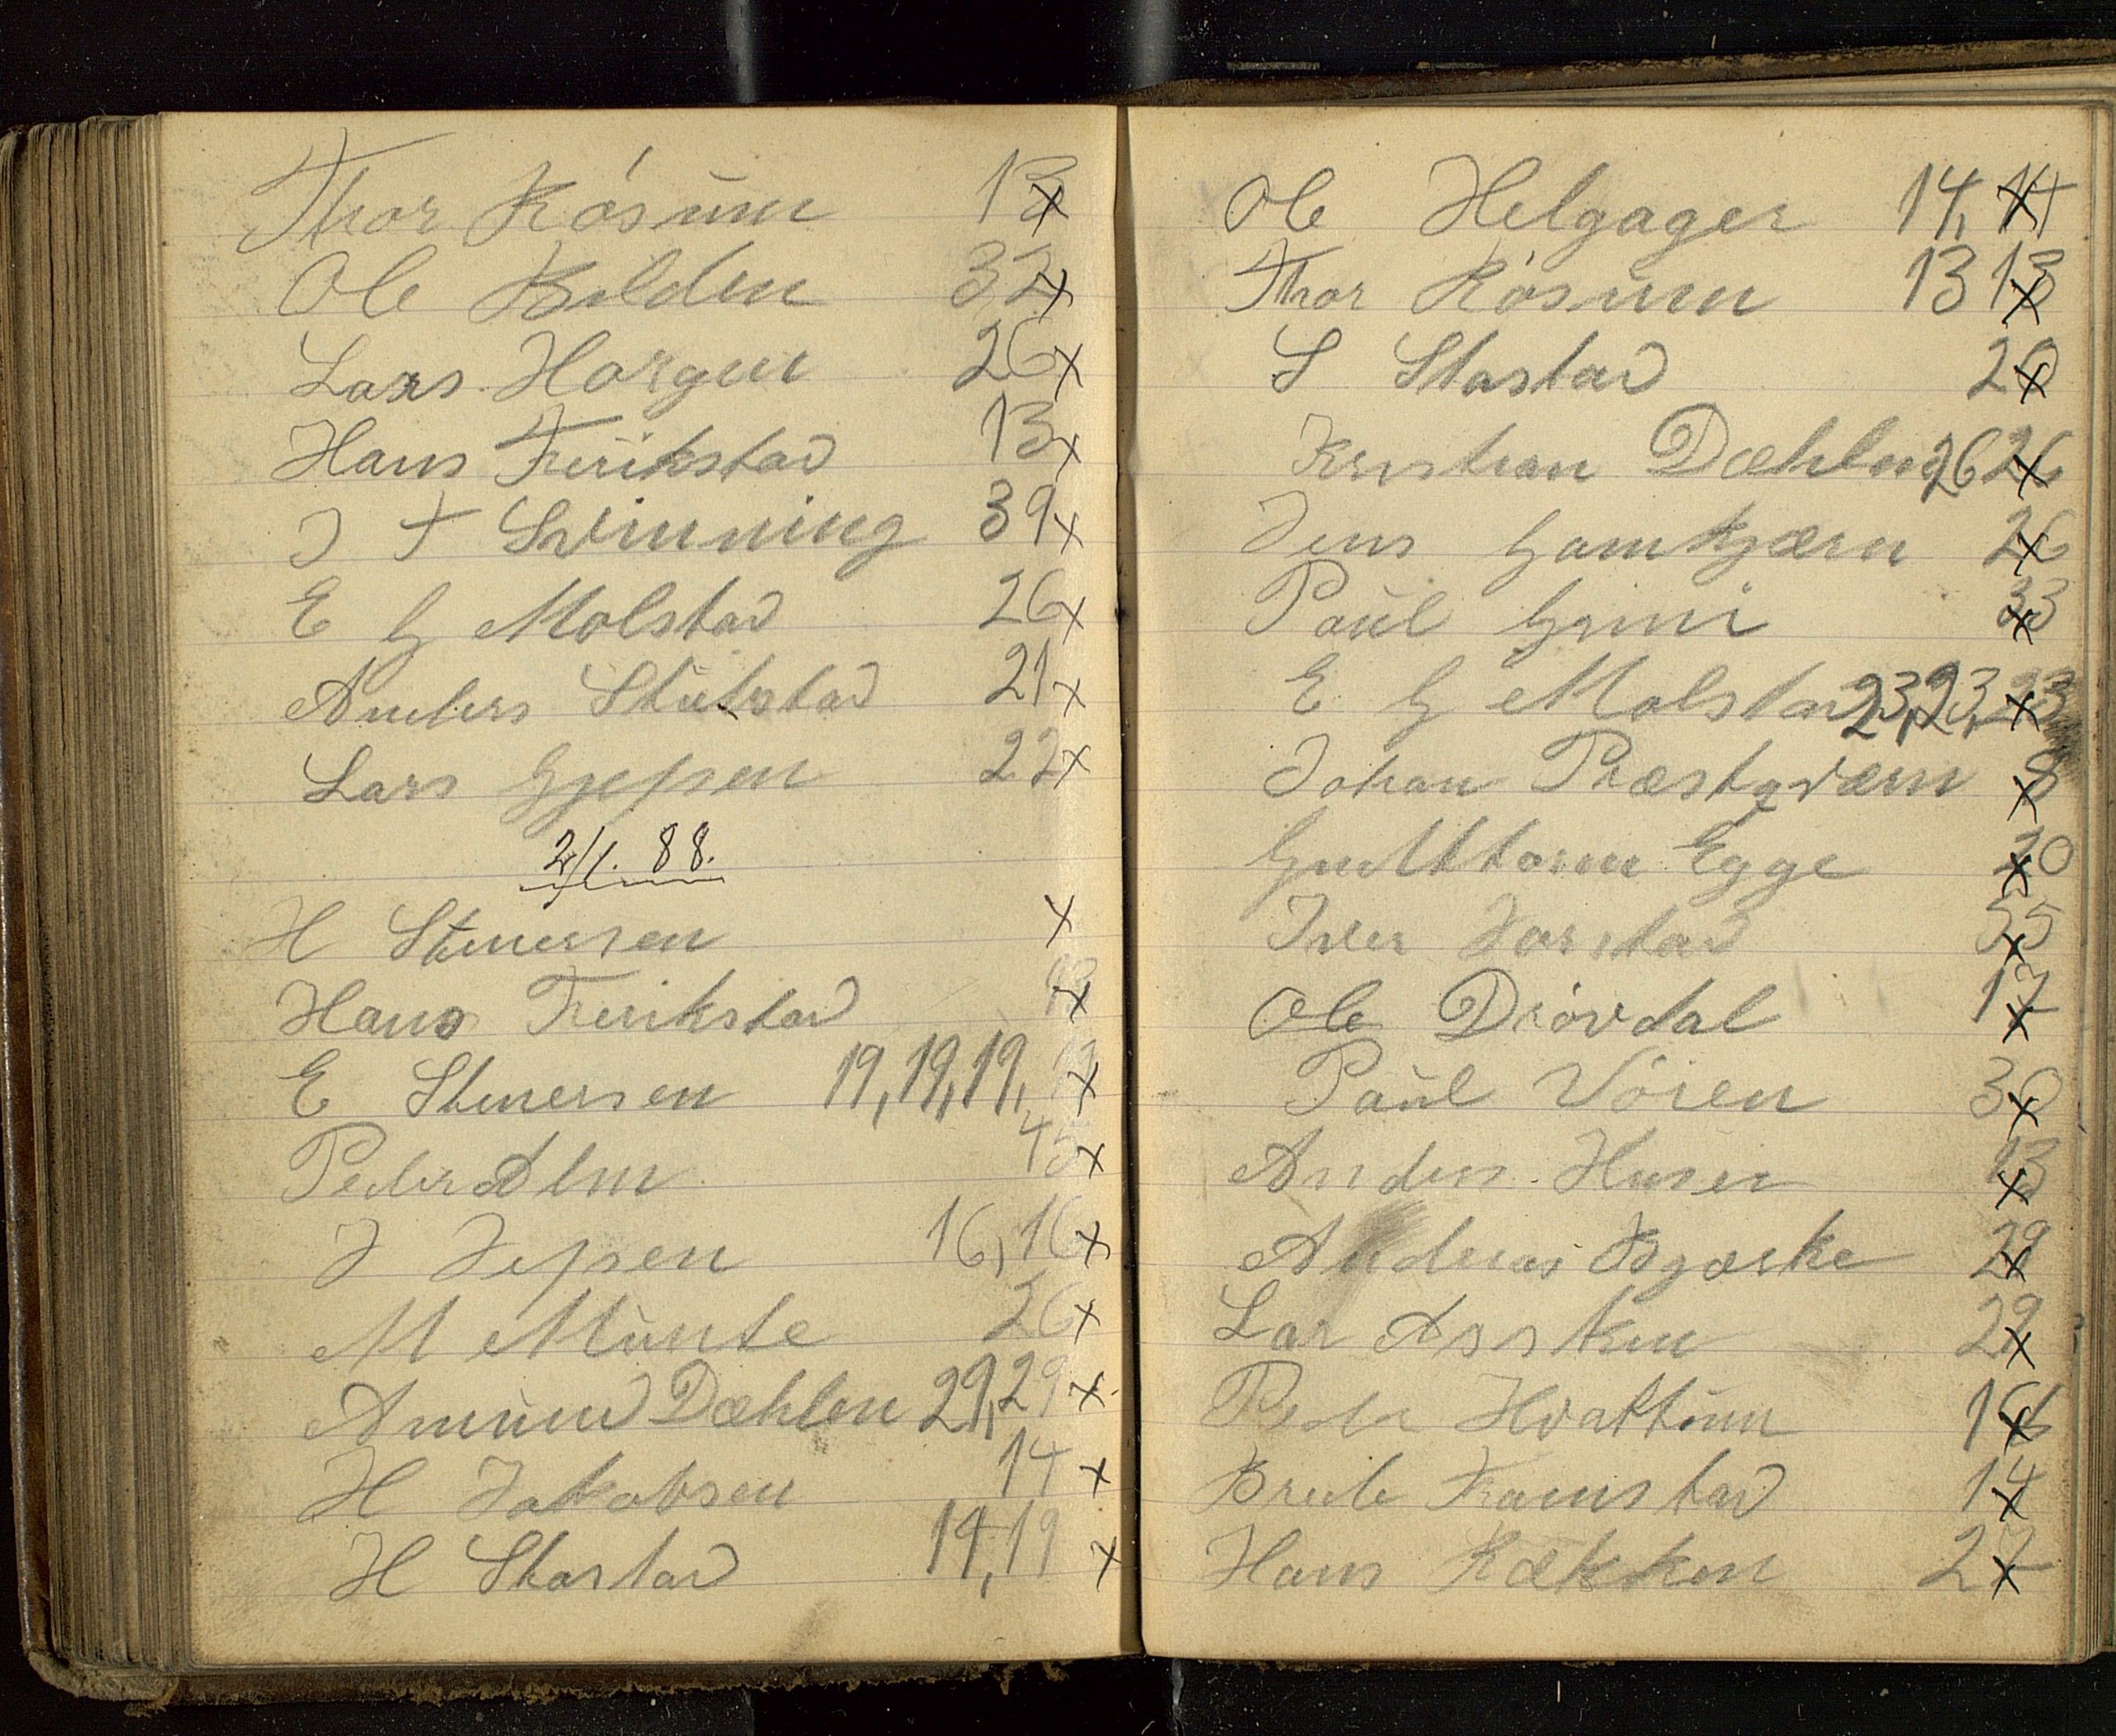 Thor Rósum 13x
Ole Kolden 32x
Lars Horgen 26x
Hans Frerikstad 13x
J T Svinning 39x
E G Molstad 26x
Anders Stubstad 21x
Lars Gjepsen 22x
2/1. 88.
H Stenersen x
Hans Frerikstad 13x
E Stenersen 19, 19, 19, 19x
Peder Alm 45x
J Jepsen 16, 16x
M Munte 26x
Amund Dæhlen 29, 29x
H Jakobsen 14 x
H Skarstad 14, 19 x
Ole Helgager 14, 14x
Thor Rósum 13 13x
S Stastad 20x
Kristian Dæhlen 26 26x
Jens Gamkjærn 26x
Paul Grini 33x
E G Molstad 23, 23, 23x
Johan Præstqværn 8x
Gudttorm Egge 20x
Iver Jorstad 55x
Ole Drövdal 17x
Paul Vóien 30x
Anders Husen 13x
Andreas Bjærke 29x
Lar Assken 29x
Peder Hvattum 16x
Brede Framstad 14x
Hans Rækken 27x